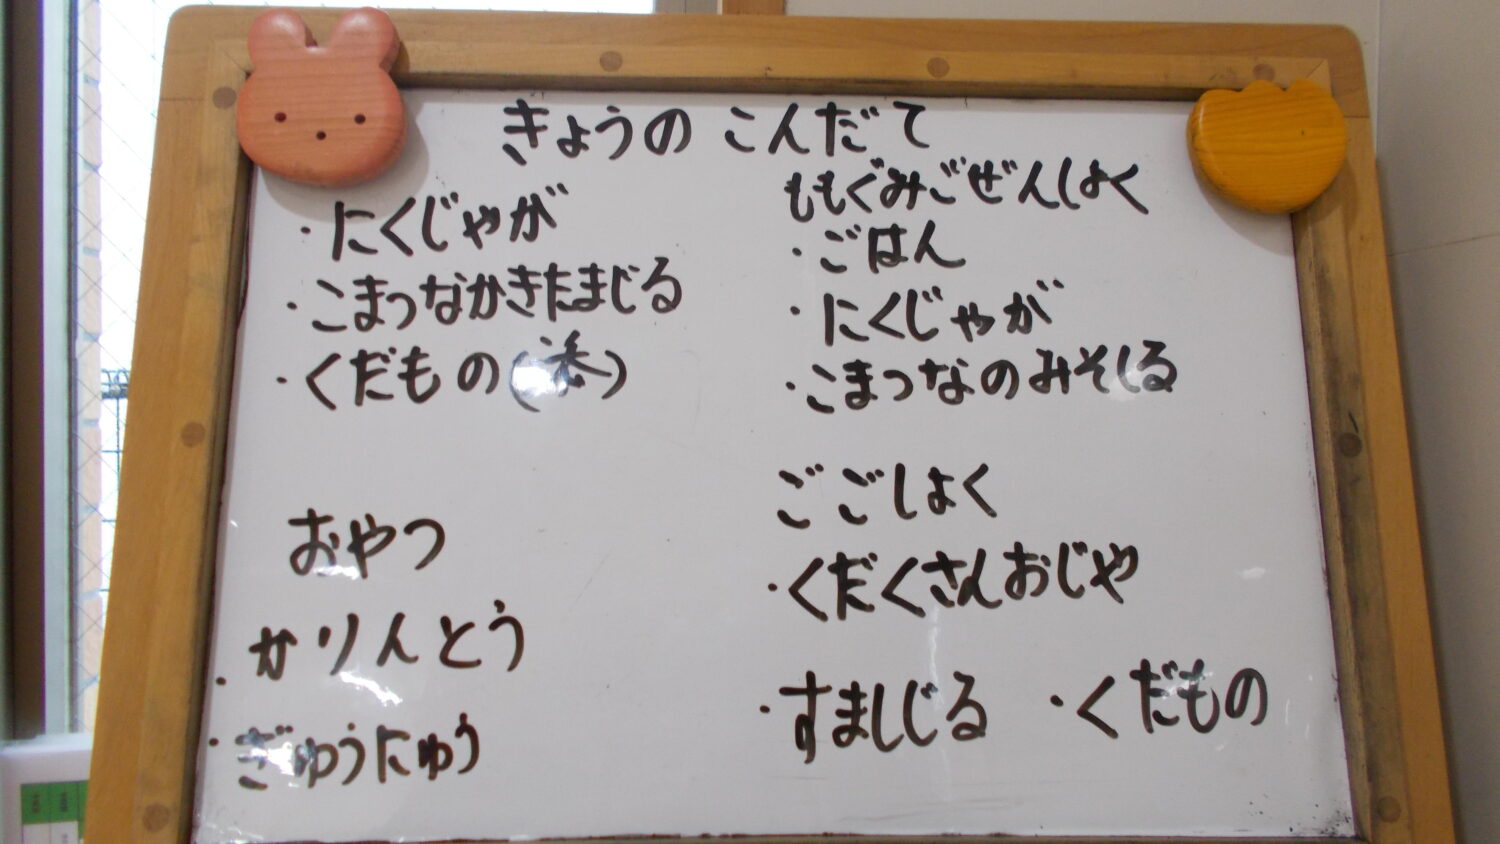 きょうの こんだて
・にくじゃが
・こまつなかきたまじる
・くだもの(
おやつ
・かりんとう
・ぎゅうにゅう
ももぐみごぜんしょく
・ごはん
・にくじゃが
・こまつなのみそしる
ごごしょく
・くだくさんおじや
・すましじる ・くだもの